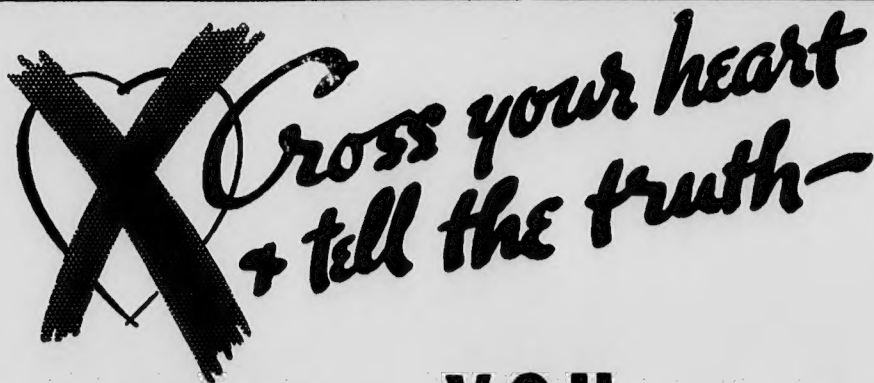 Cross your heart
& tell the truth—
YOU